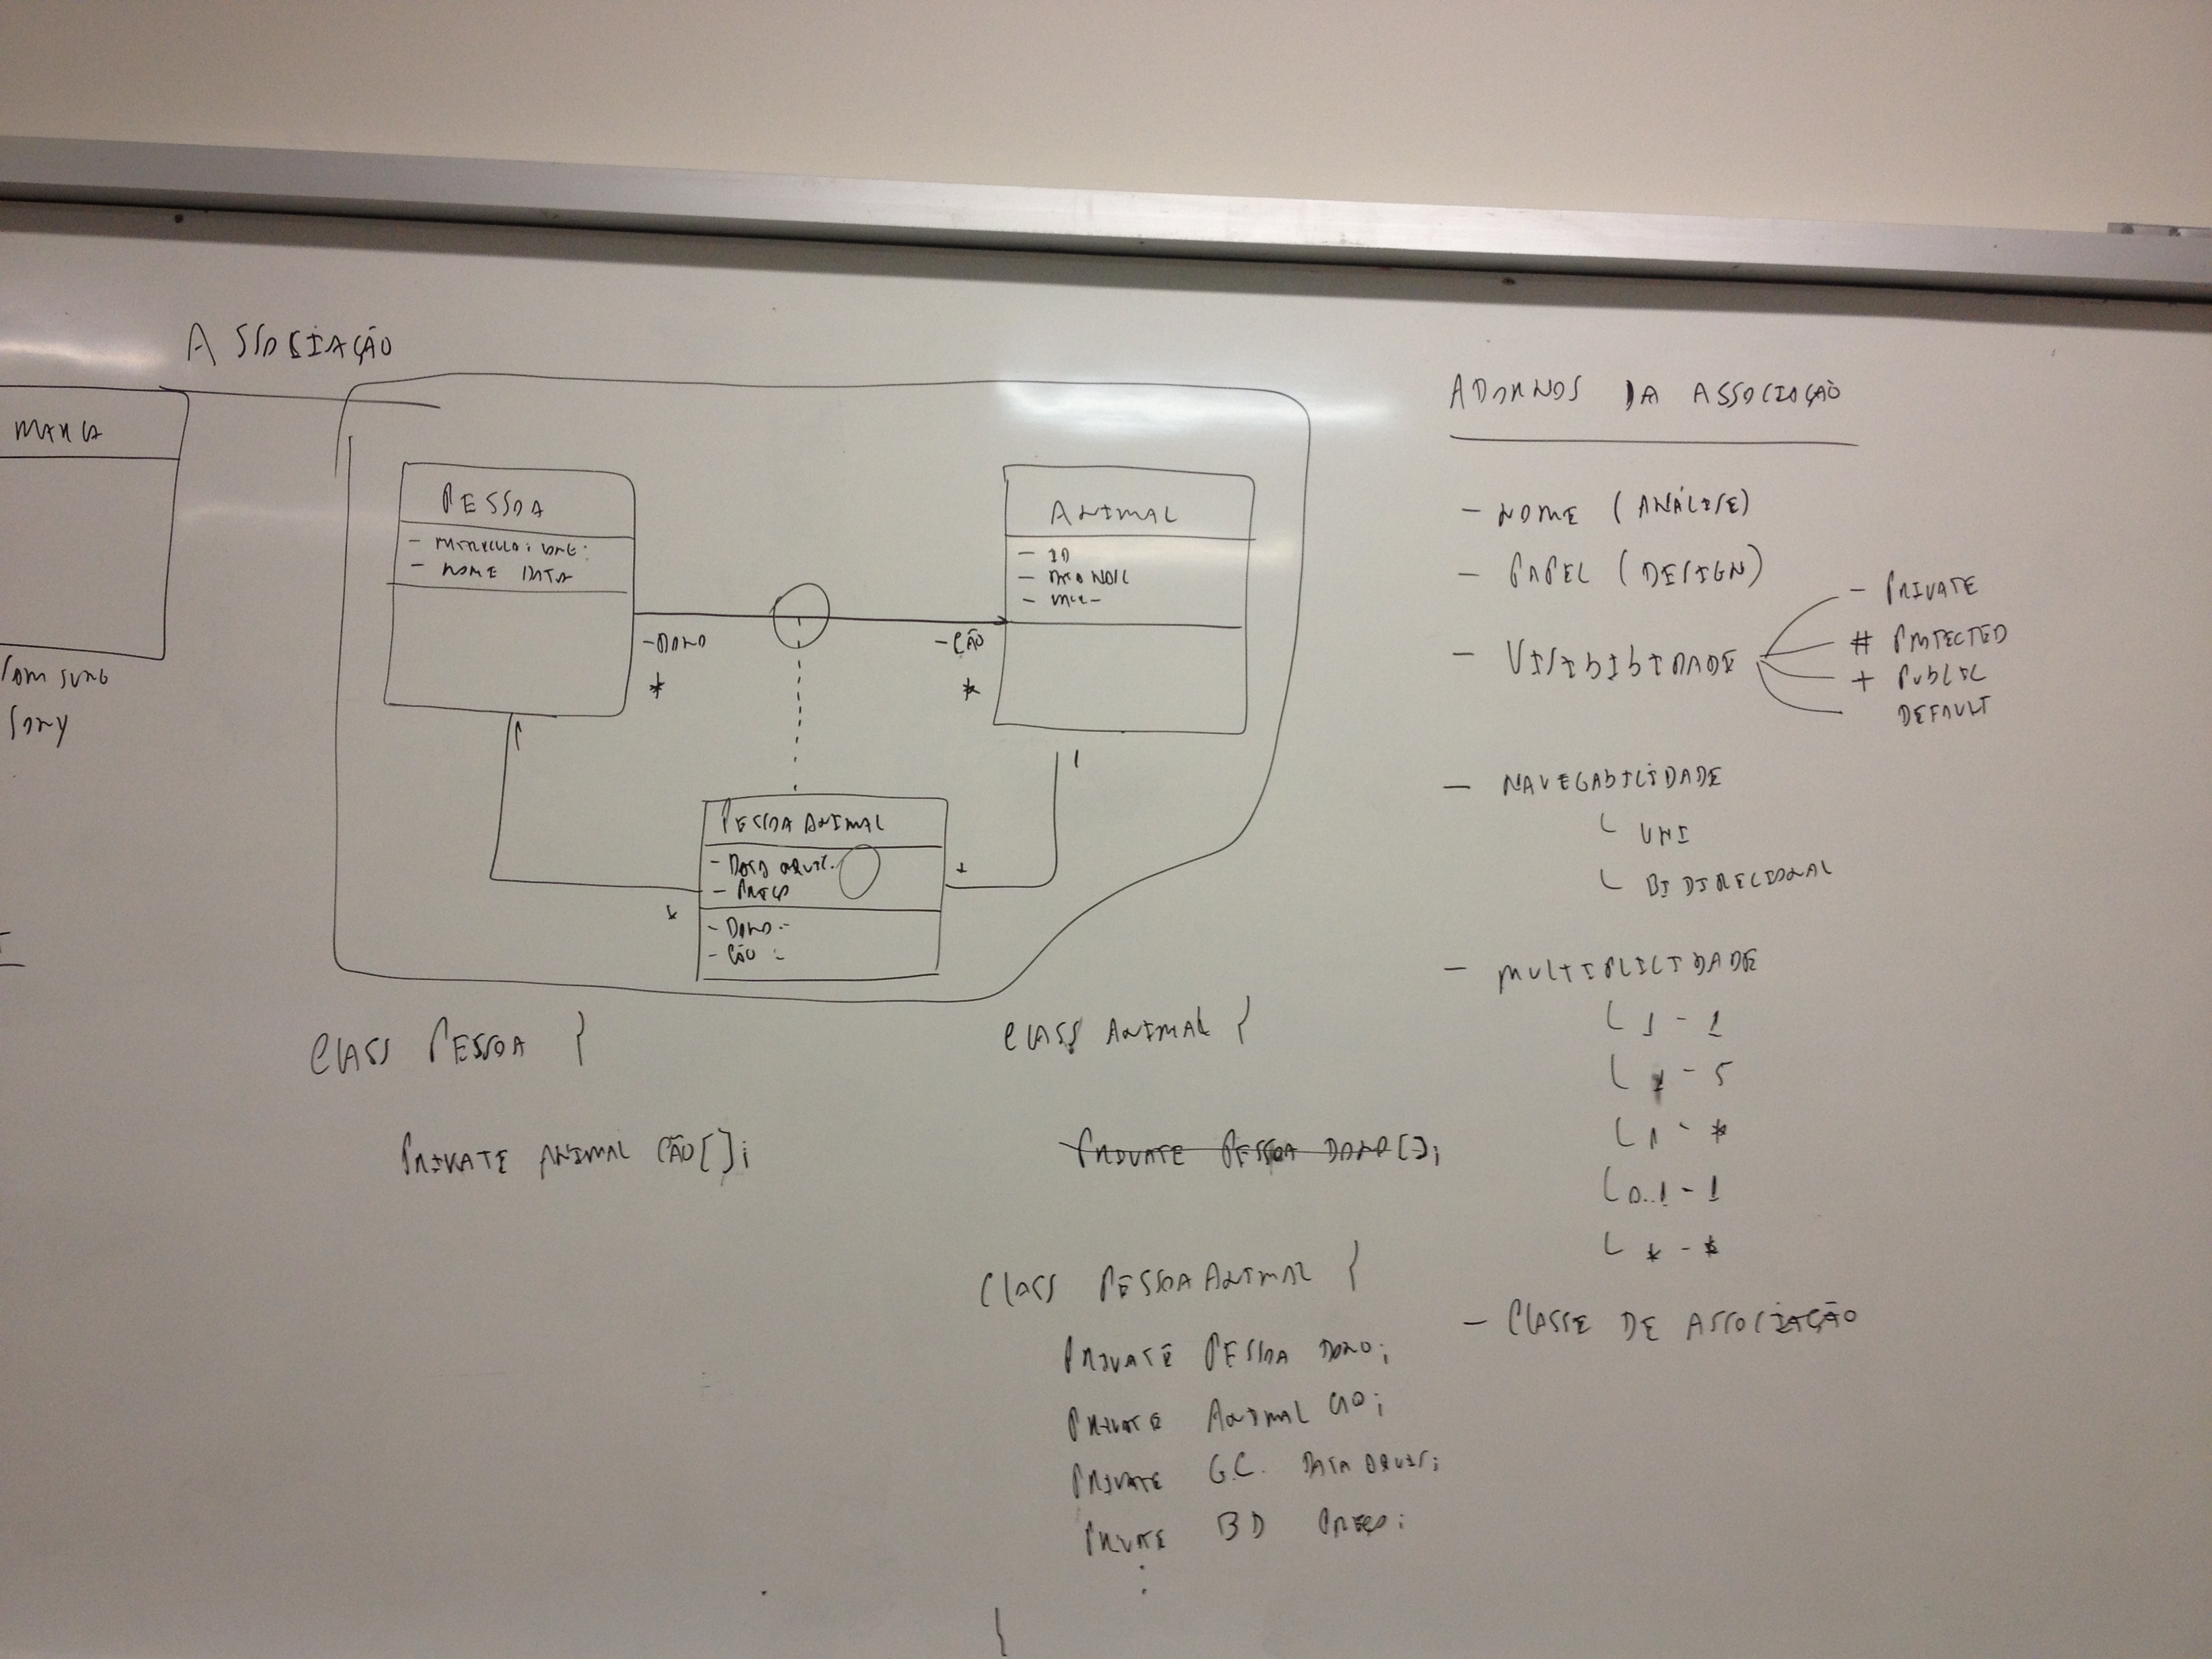 ASSOCIAÇÃO
MARCA
SAMSUNG
SONY
PESSOA
- NOME DATA
ANIMAL
- ID
- DONO
*
- CÃO
*
1
1
PESSOA ANIMAL
- DATA AQUIS.
- PREÇO
- DONO:
- CÃO:
*
*
CLASS PESSOA {
PRIVATE ANIMAL CÃO[];
CLASS ANIMAL {
PRIVATE PESSOA DONO[];
CLASS PESSOAANIMAL {
PRIVATE PESSOA DONO;
PRIVATE ANIMAL CÃO;
PRIVATE G.C. DATA AQUIS;
PRIVATE BD PREÇO;
}
ADORNOS DA ASSOCIAÇÃO
- NOME (ANÁLISE)
- PAPEL (DESIGN)
- VISIBIBIDADE
- PRIVATE
# PROTECTED
+ PUBLIC
DEFAULT
- NAVEGABILIDADE
UNI
BIDIRECIONAL
- MULTIPLICIDADE
1 - 1
1 - 5
1 - *
0..1 - 1
* - *
- CLASSE DE ASSOCIAÇÃO